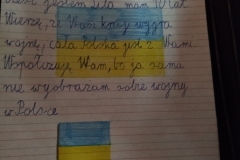 Cześć jestem Lila mam 10 lat
Wierzę, że Wasz kraj wygra
wojnę, cała Polska jest z Wami.
Współczuję Wam, bo ja sama
nie wyobrażam sobie wojny
w Polsce